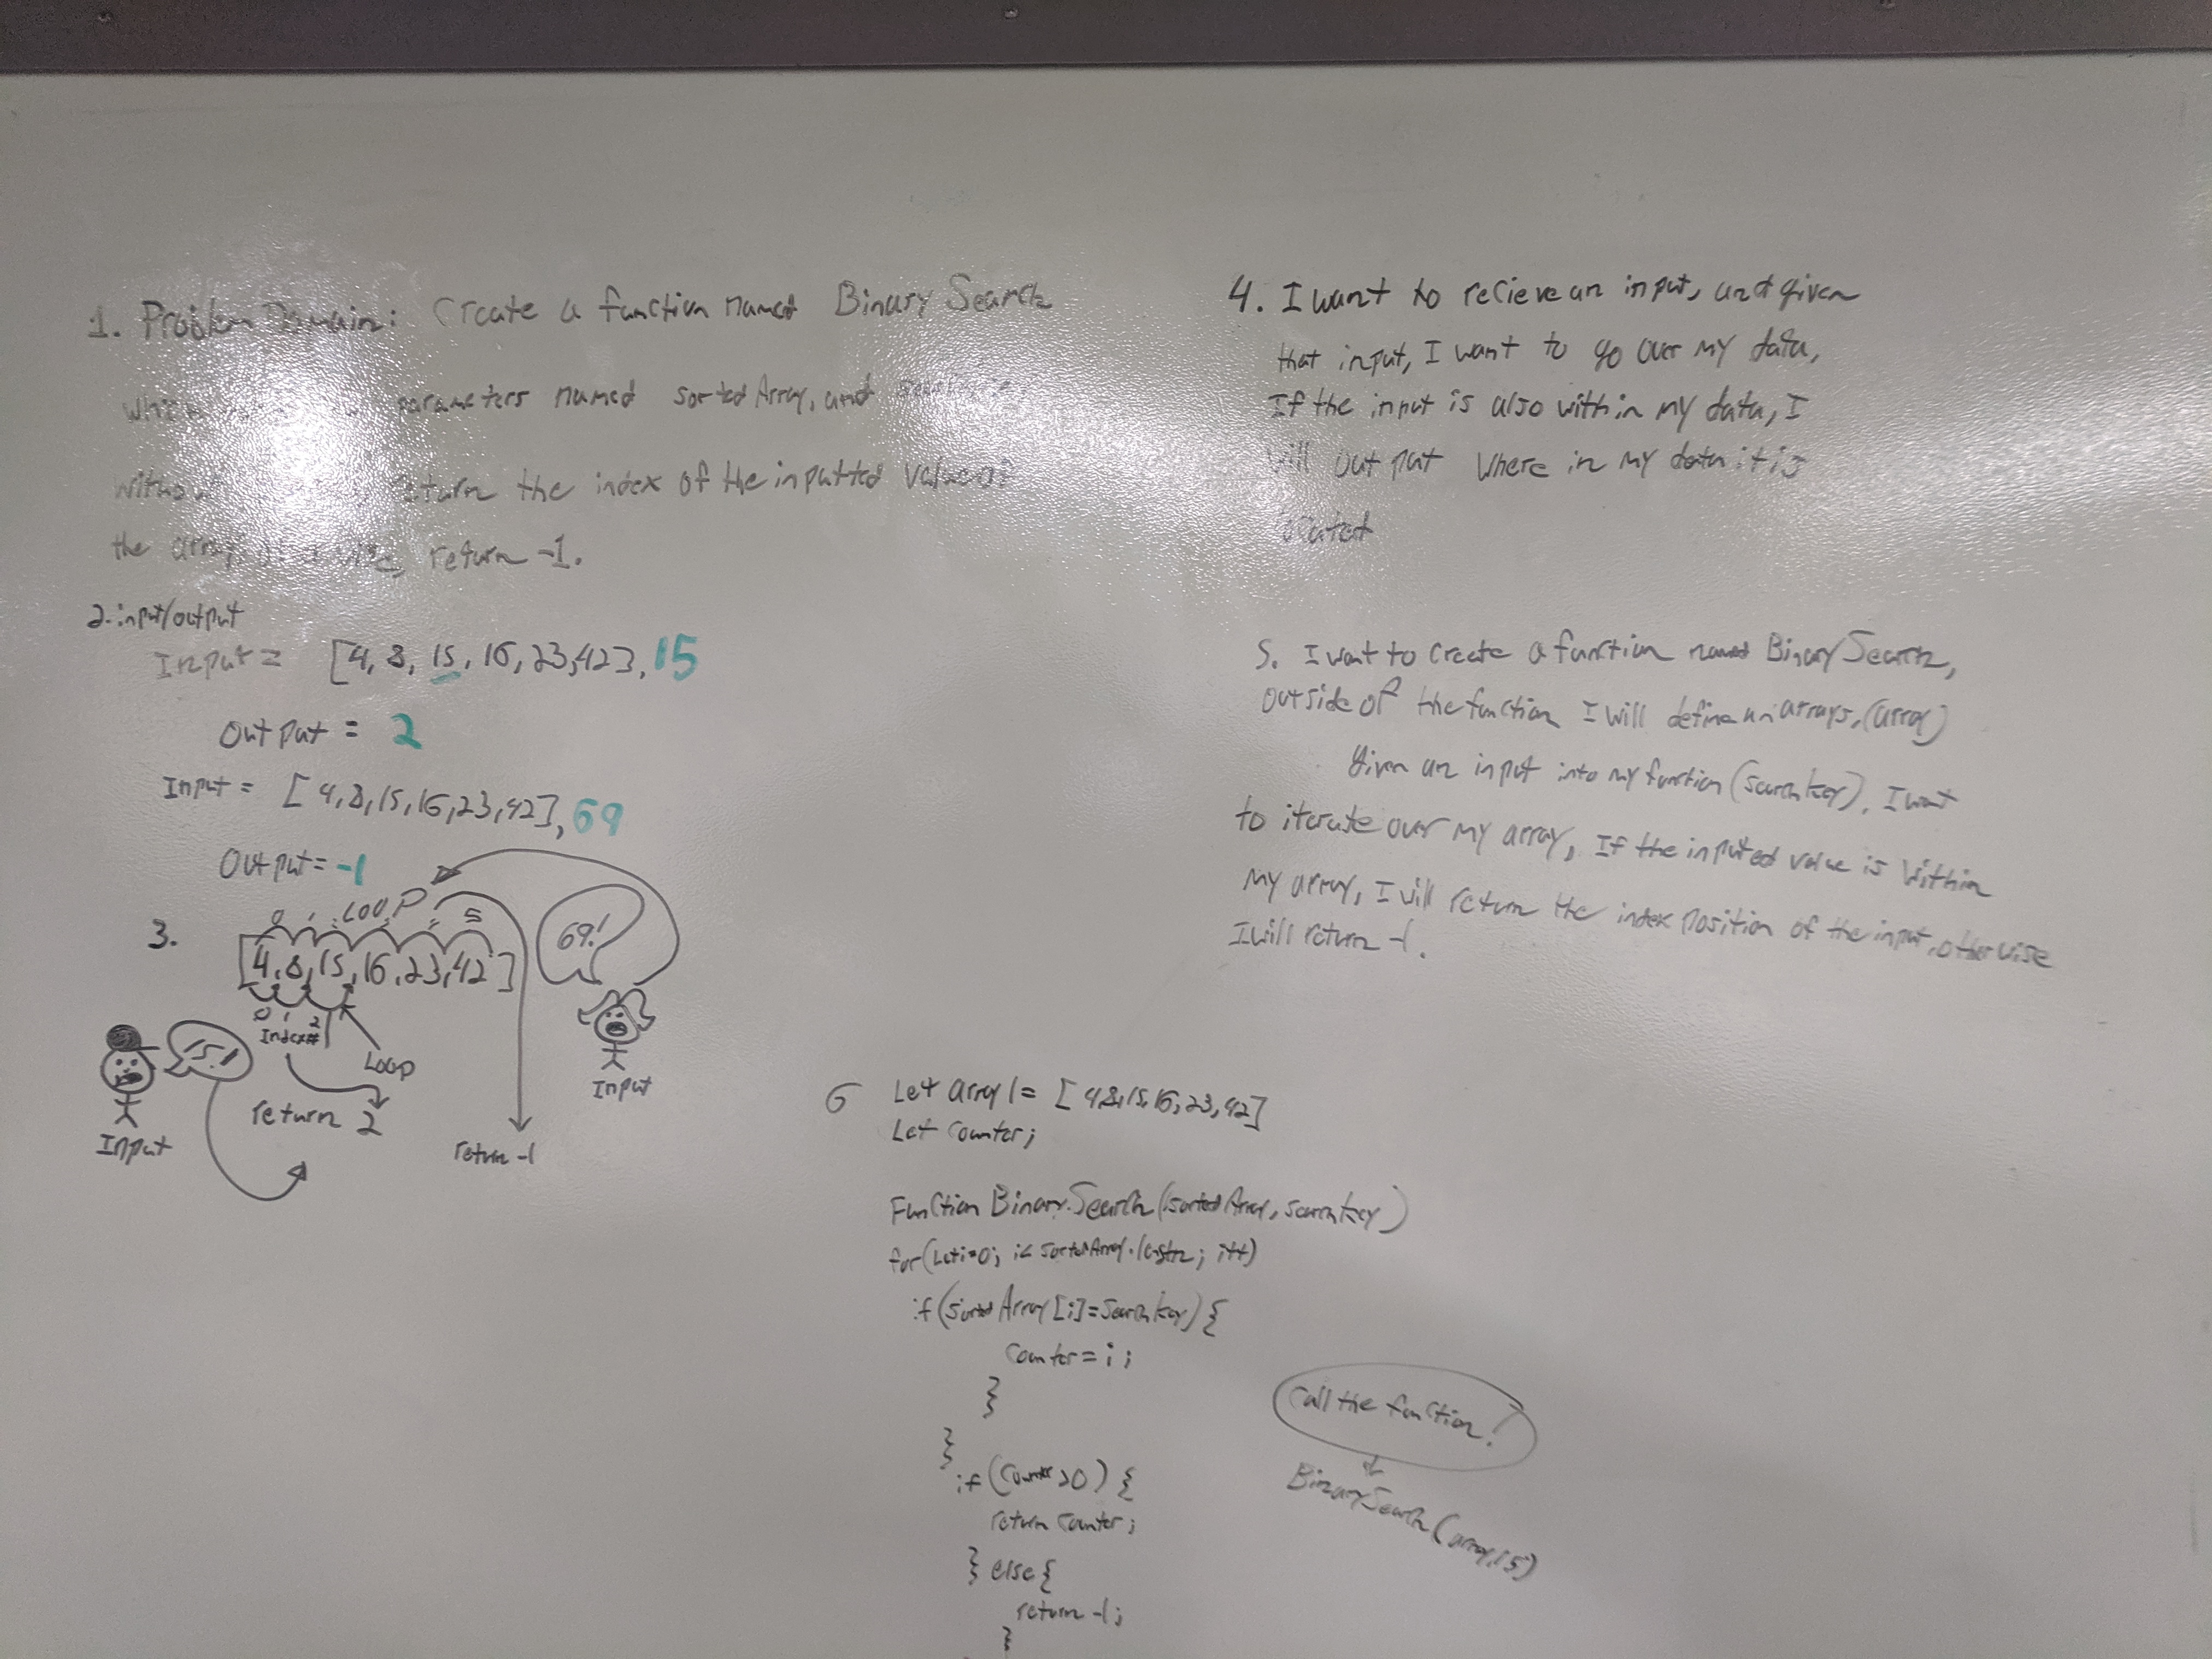 1. Problem Domain: Create a function named Binary Search
which parameters named sorted Array, and
return the index of the inputted value
the array, return -1.
2. input/output
Input = [4, 8, 15, 16, 23, 42], 15
Output = 2
Input = [4, 8, 15, 16, 23, 42], 69
Output = -1
3.
LOOP
0 1 5
[4, 8, 15, 16, 23, 42]
0 1 2
Index#
Loop
15!
Input
return 2
69!
Input
return -1
4. I want to recieve an input, and given
that input, I want to go over my data,
If the input is also within my data, I
will output where in my data it is
located
5. I want to create a function named BinarySearch,
outside of the function I will define an arrays, (array)
given an input into my function (searchkey), I want
to iterate over my array, If the inputed value is within
my array, I will return the index position of the input, otherwise
I will return -1.
6 Let array1 = [4,8,15,16,23,42]
Let counter;
Function BinarySearch(sortedArray, searchkey)
for(Let i=0; i< sortedArray.length; i++)
if (sortedArray[i]=Searchkey) {
counter = i;
}
}
if (counter >0) {
return counter;
} else {
return -1;
}
Call the function!
BinarySearch(array, 15)